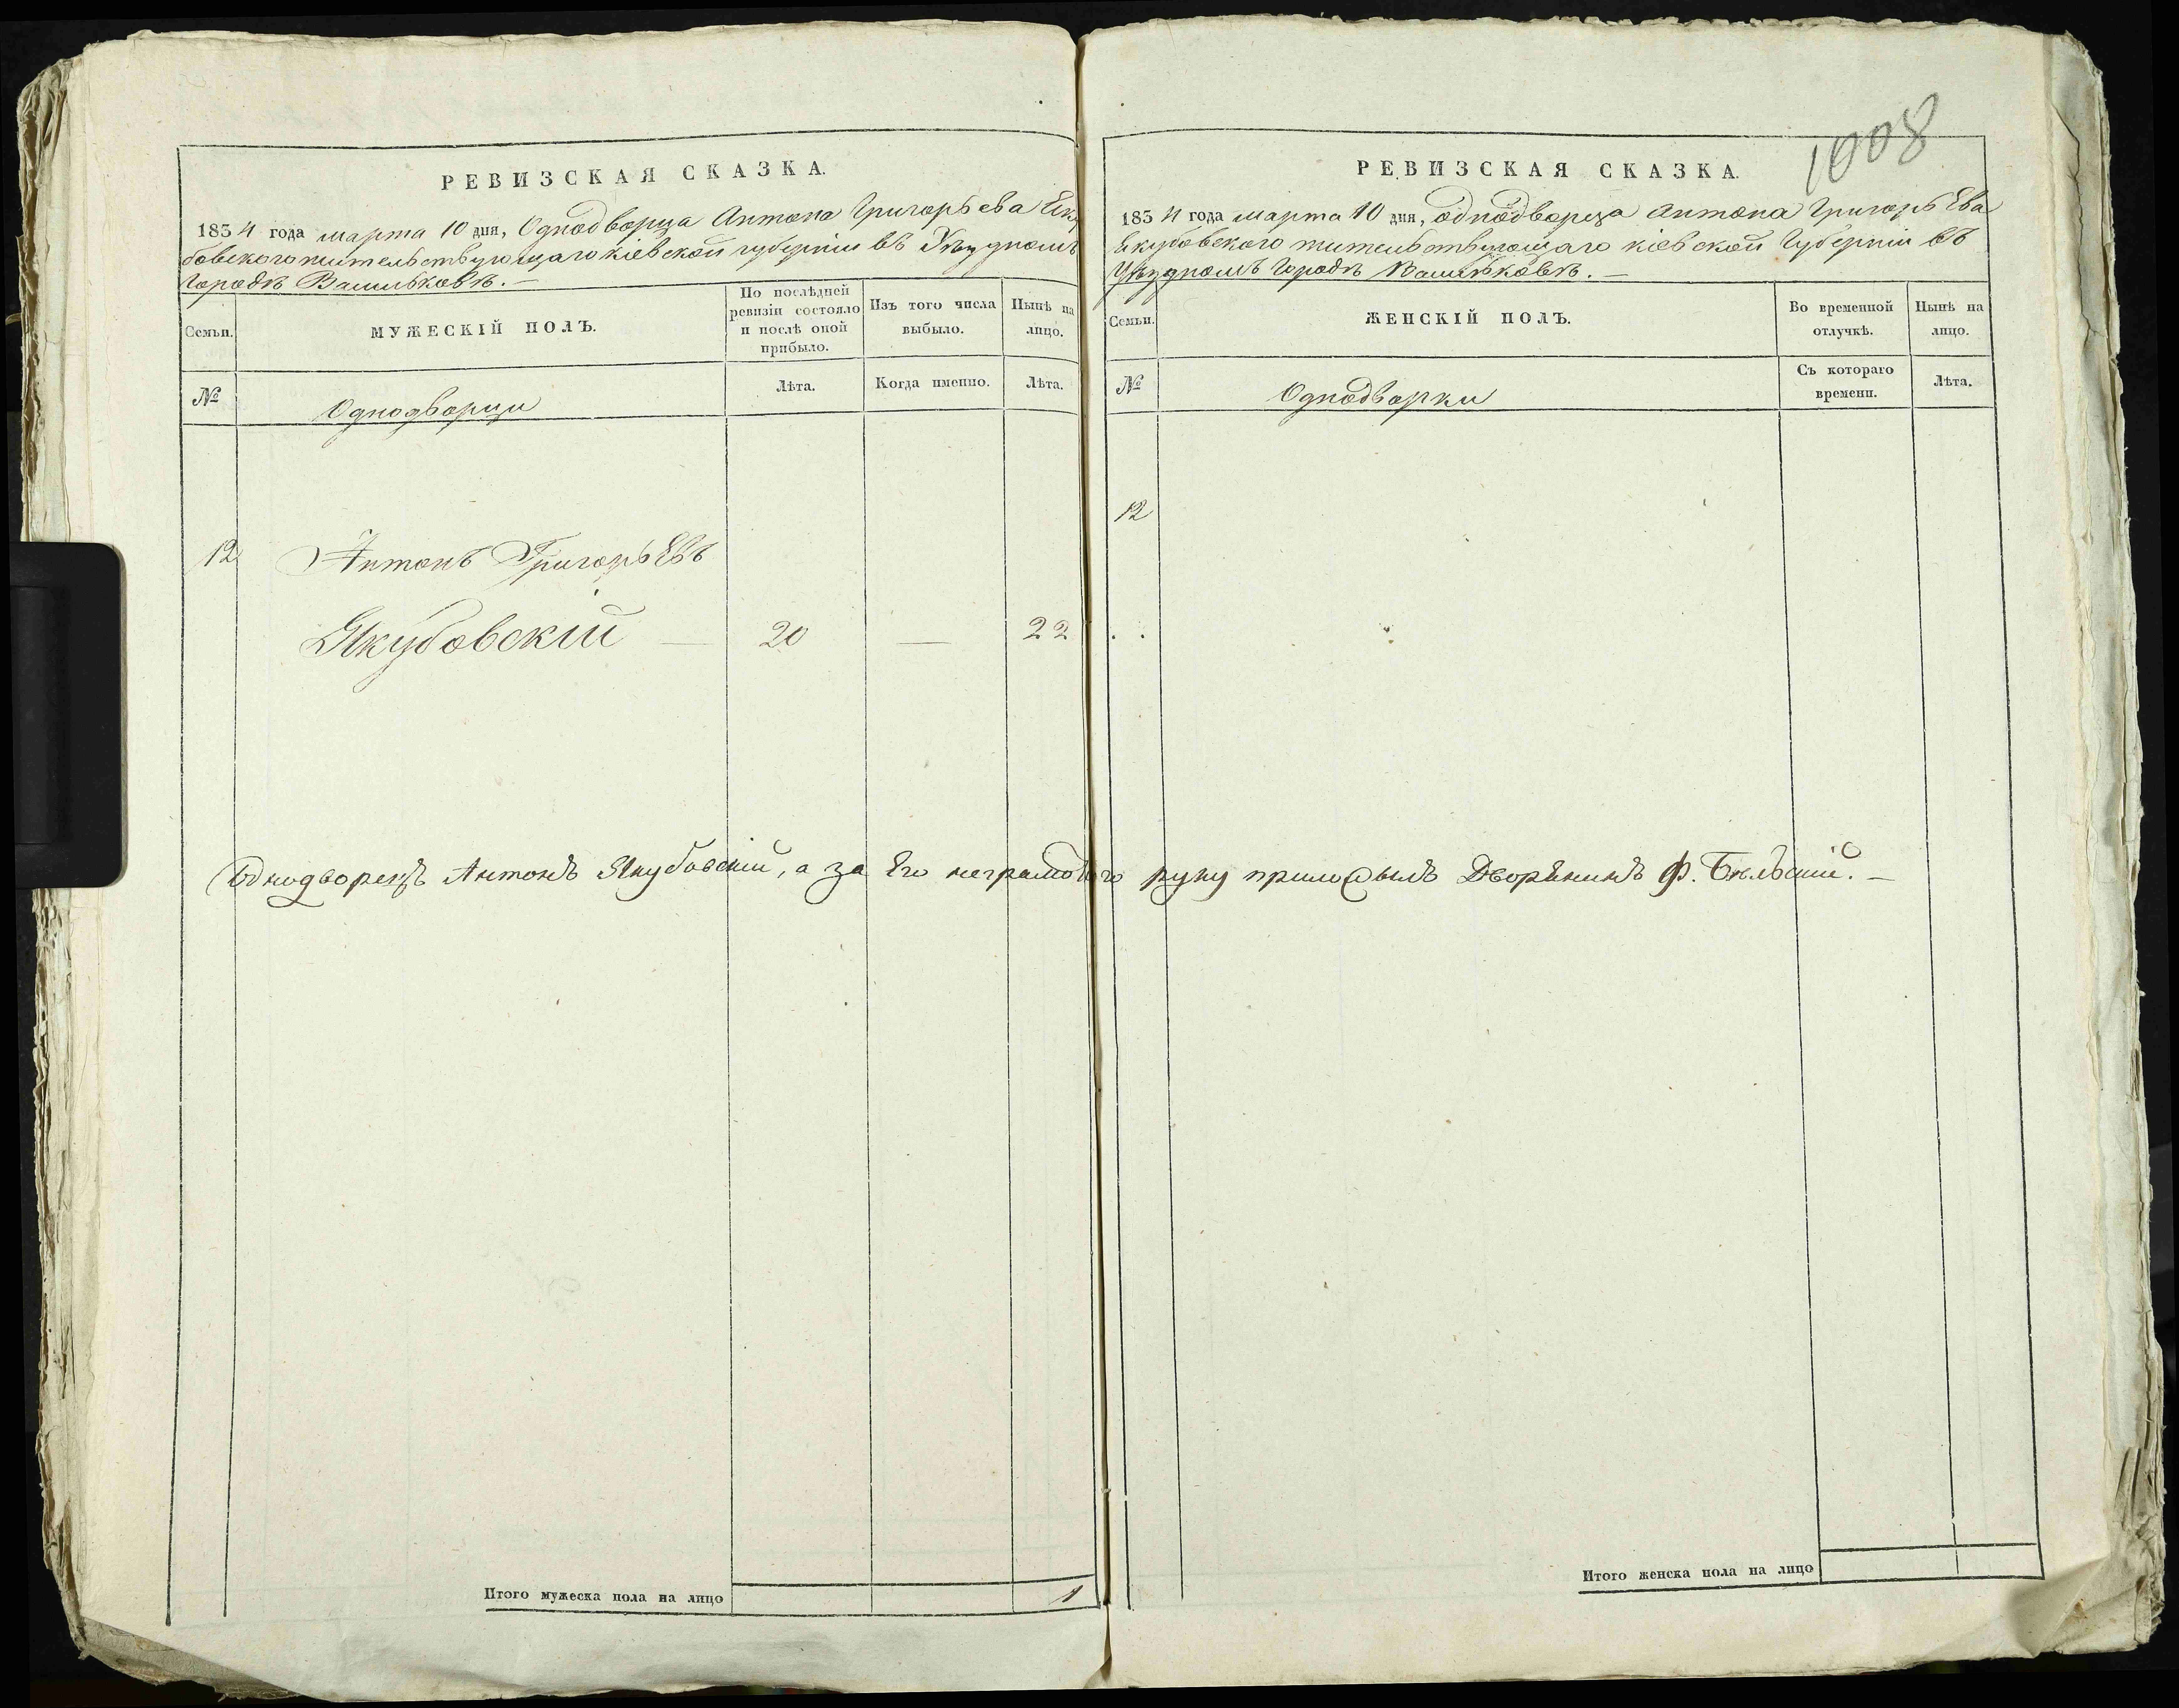 РЕВИЗСКАЯ СКАЗКА.
1834 года марта 10 дня, Однодворца Антона Григорьева Яку
бовского жительствующаго кіевской губерніи въ Уѣздномъ
Городѣ Васильковѣ. —
Семьи.
МУЖЕСКІЙ ПОЛЪ.
По послѣдней ревизіи состояло и послѣ оной прибыло.
Изъ того числа выбыло.
Нынѣ на лицо.
№
Однодворцы
Лѣта.
Когда именно.
Лѣта.
12 Антонъ Григорьевъ
Якубовскій — 20 — 22
Однодворецъ Антонъ Якубовскій, а за Его неграмотного руку приложылъ Дворянинъ Ф. Бѣльскій. —
Итого мужеска пола на лицо 1
1008
РЕВИЗСКАЯ СКАЗКА.
1834 года марта 10 дня, однодворца Антона Григорьева
Якубовского жительствующаго кіевской Губерніи въ
Уѣздномъ Городѣ Васильковѣ. —
Семьи.
ЖЕНСКІЙ ПОЛЪ.
Во временной отлучкѣ.
Нынѣ на лицо.
№
Однодворки
Съ котораго времени.
Лѣта.
12
Итого женска пола на лицо